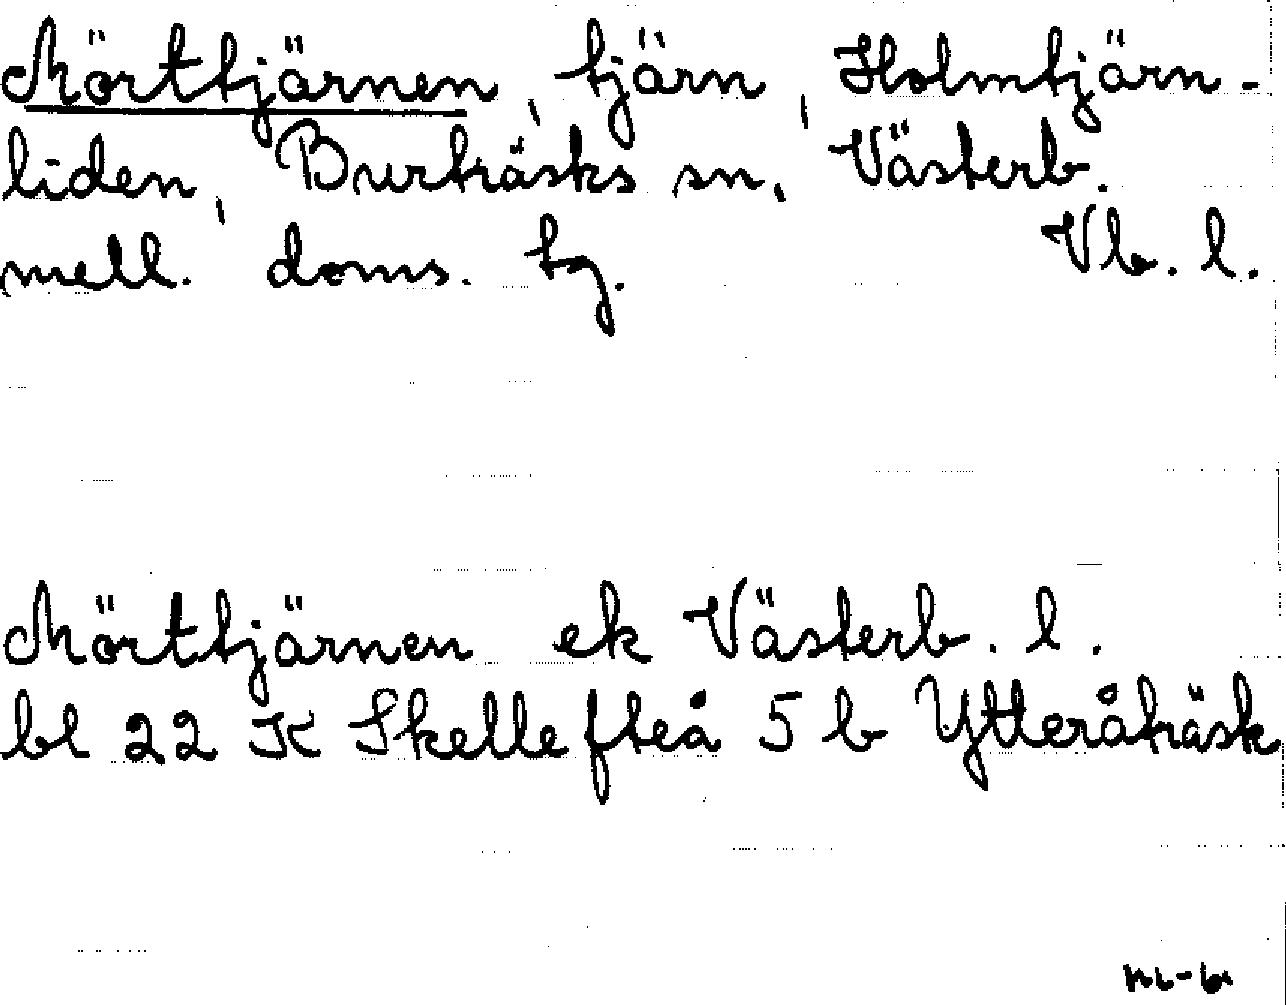 Mörttjärnen, tjärn, Holmtjärn-
liden, Burträsks sn, Västerb.
mell. doms. tg. Vb. l.
Mörttjärnen ek Västerb. l.
bl 22 K Skellefteå 5 b Ytteråträsk